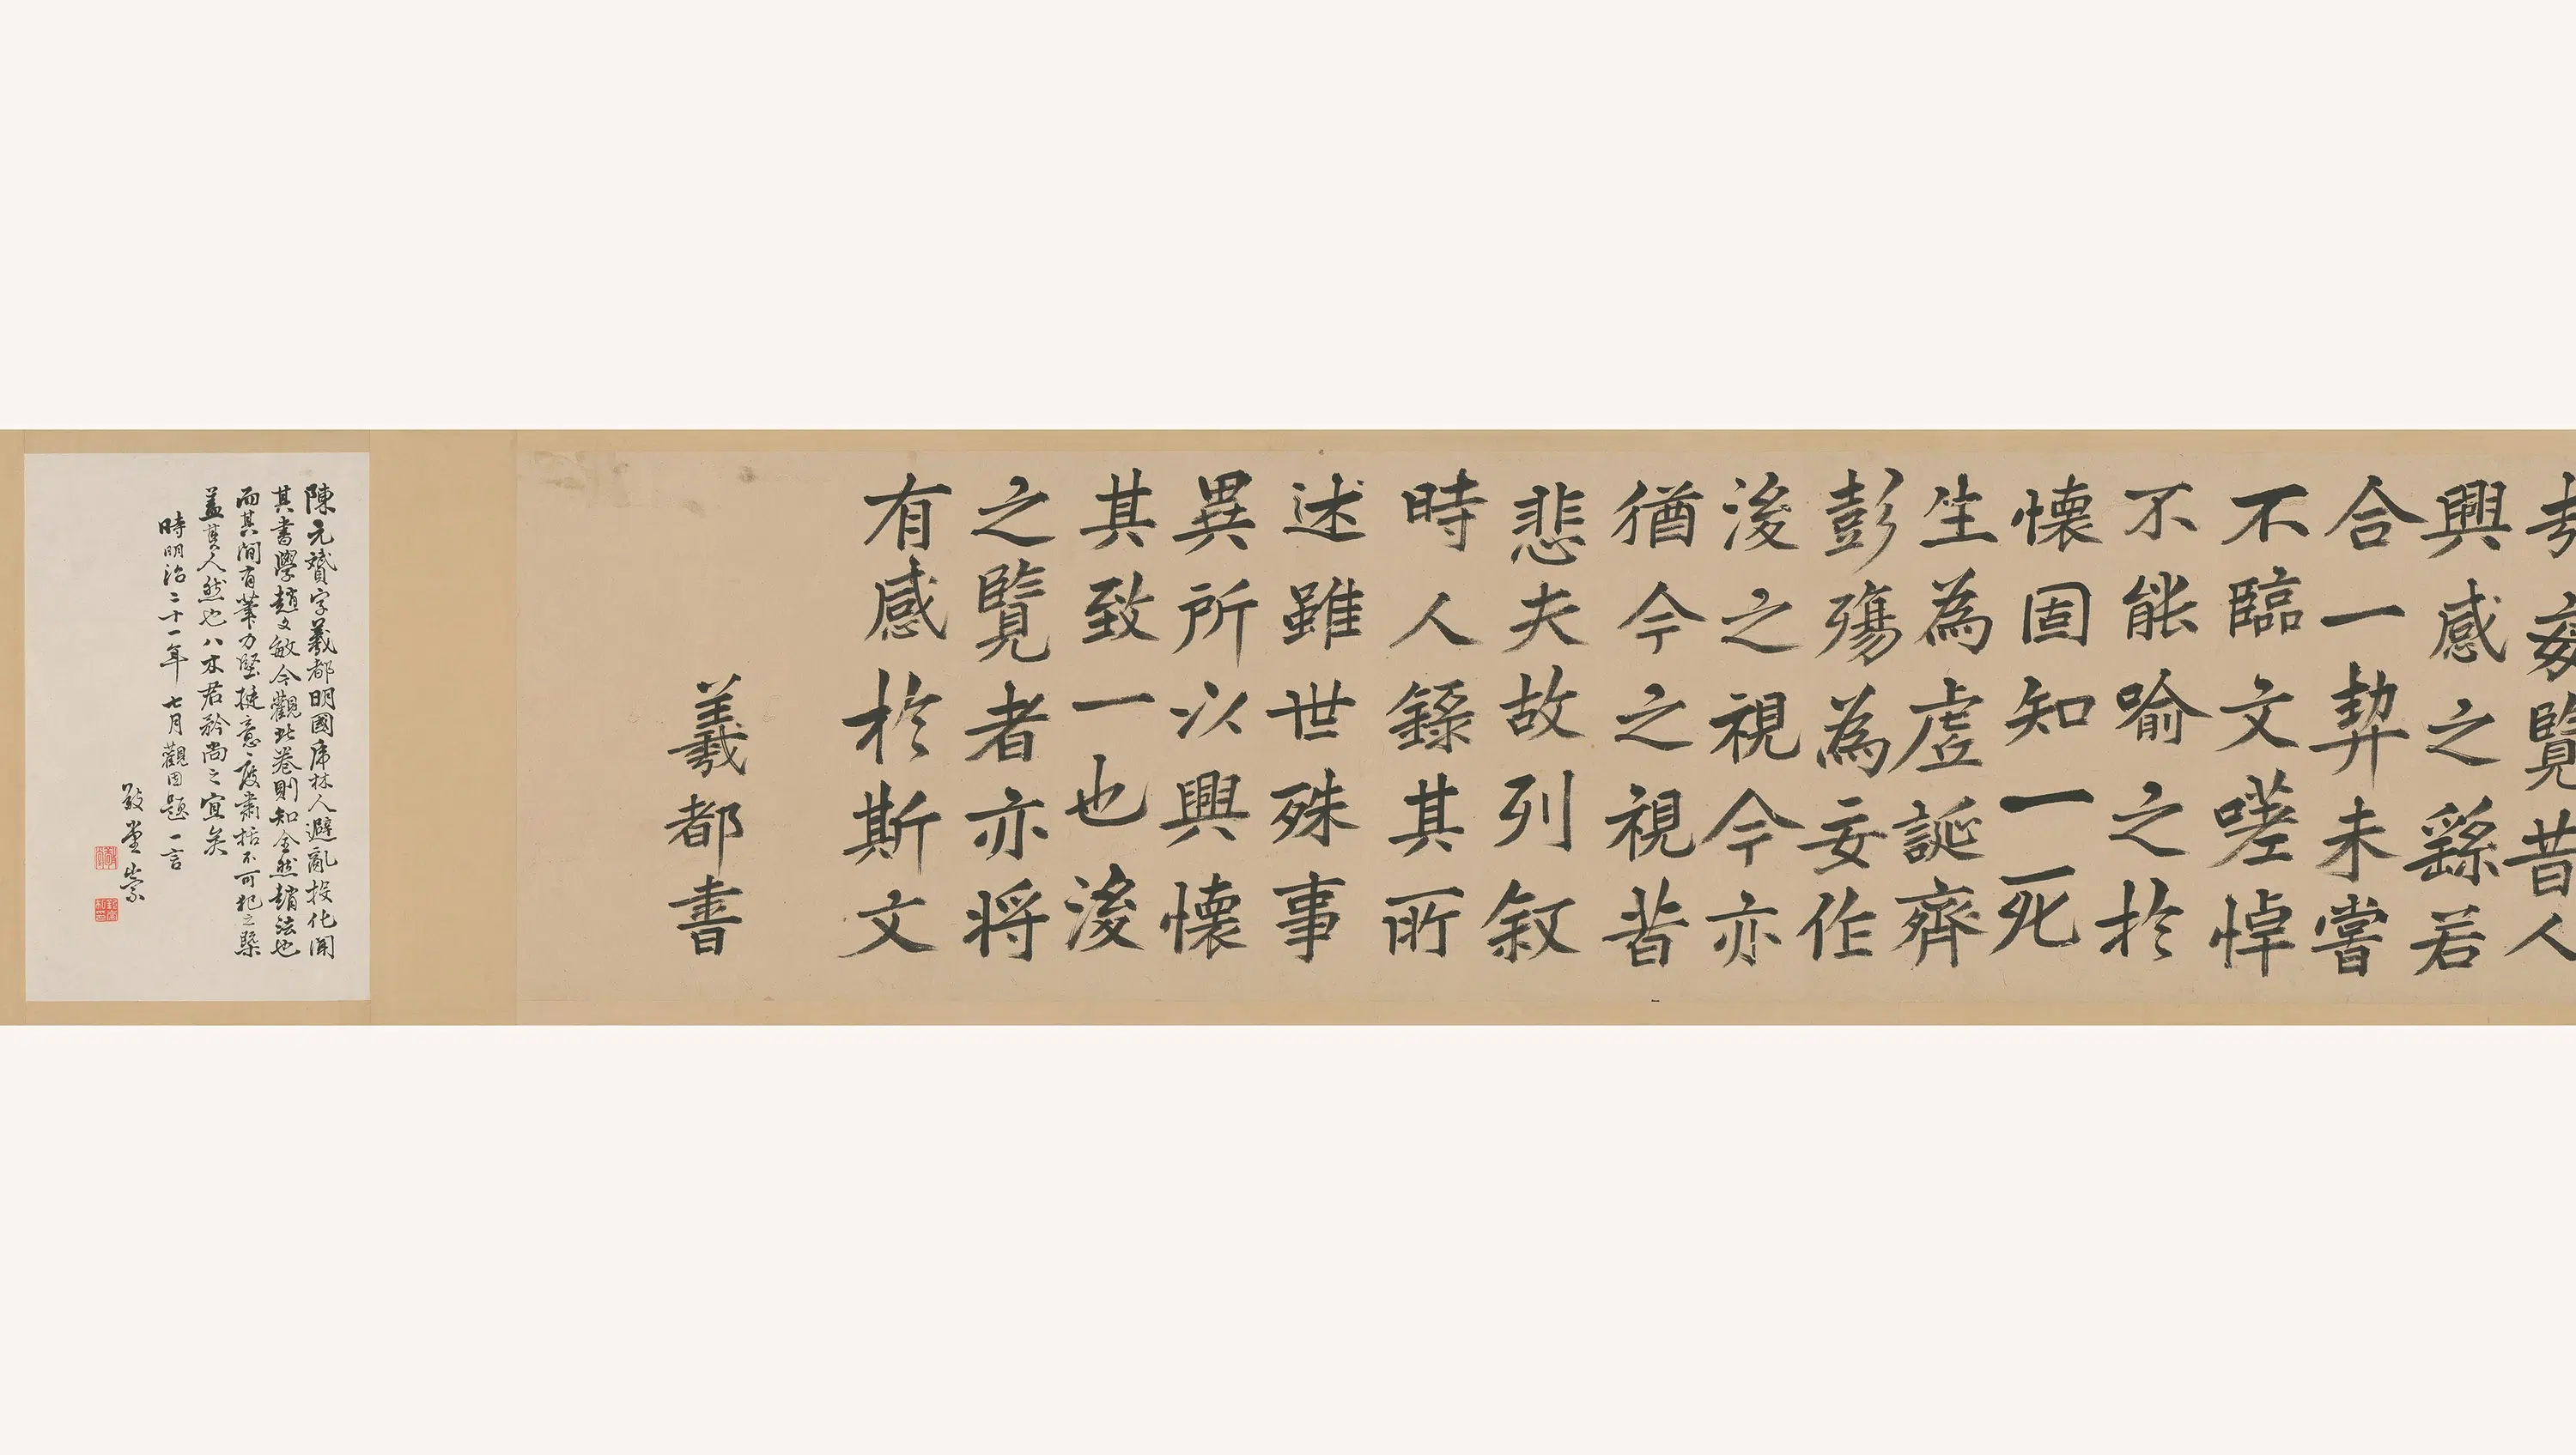 覽昔人
興感之繇若
合一契未嘗
不臨文嗟悼
不能喻之於
懐固知一死
生為虛誕齊
彭殤為妄作
後之視今亦
猶今之視昔
悲夫故列叙
時人錄其所
述雖世殊事
異所以興懐
其致一也後
之覽者亦将
有感於斯文
羲都書
陳元贇字羲都明國虎林人避亂投化聞
其書學趙文敏今觀此卷則知全然趙法也
而其間有筆力堅挺意度肅括不可犯之槩
蓋其人然也八木君矜尚之宜矣
時明治二十一年七月觀因題一言
敬堂崇